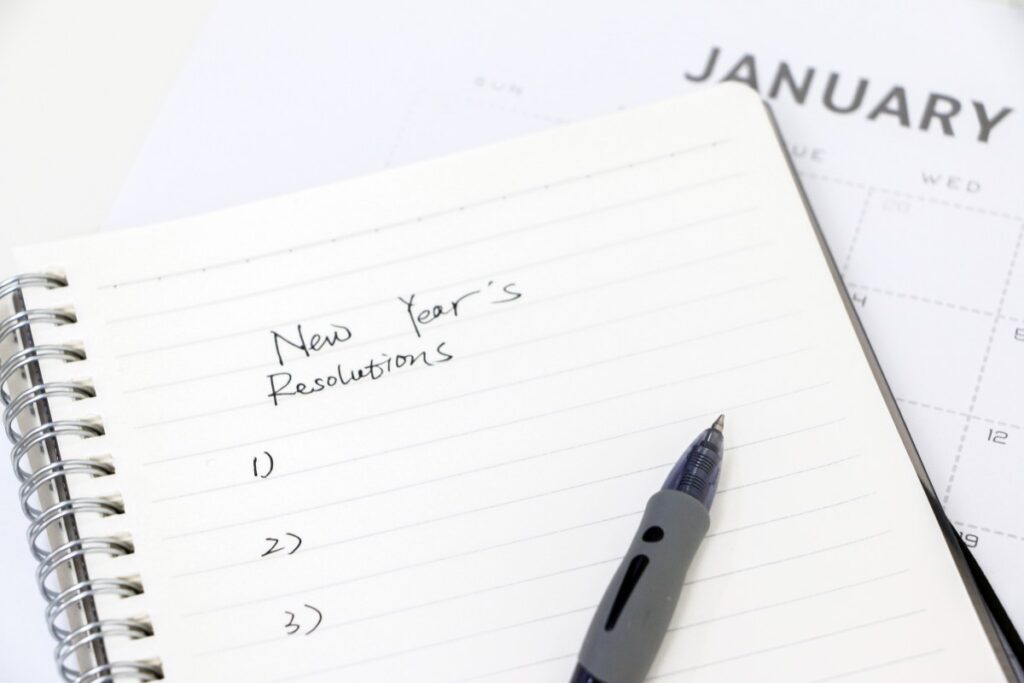 JANUARY
SUN
UE
WED
4
5
12
19
New Year's
Resolutions
1)
2)
3)